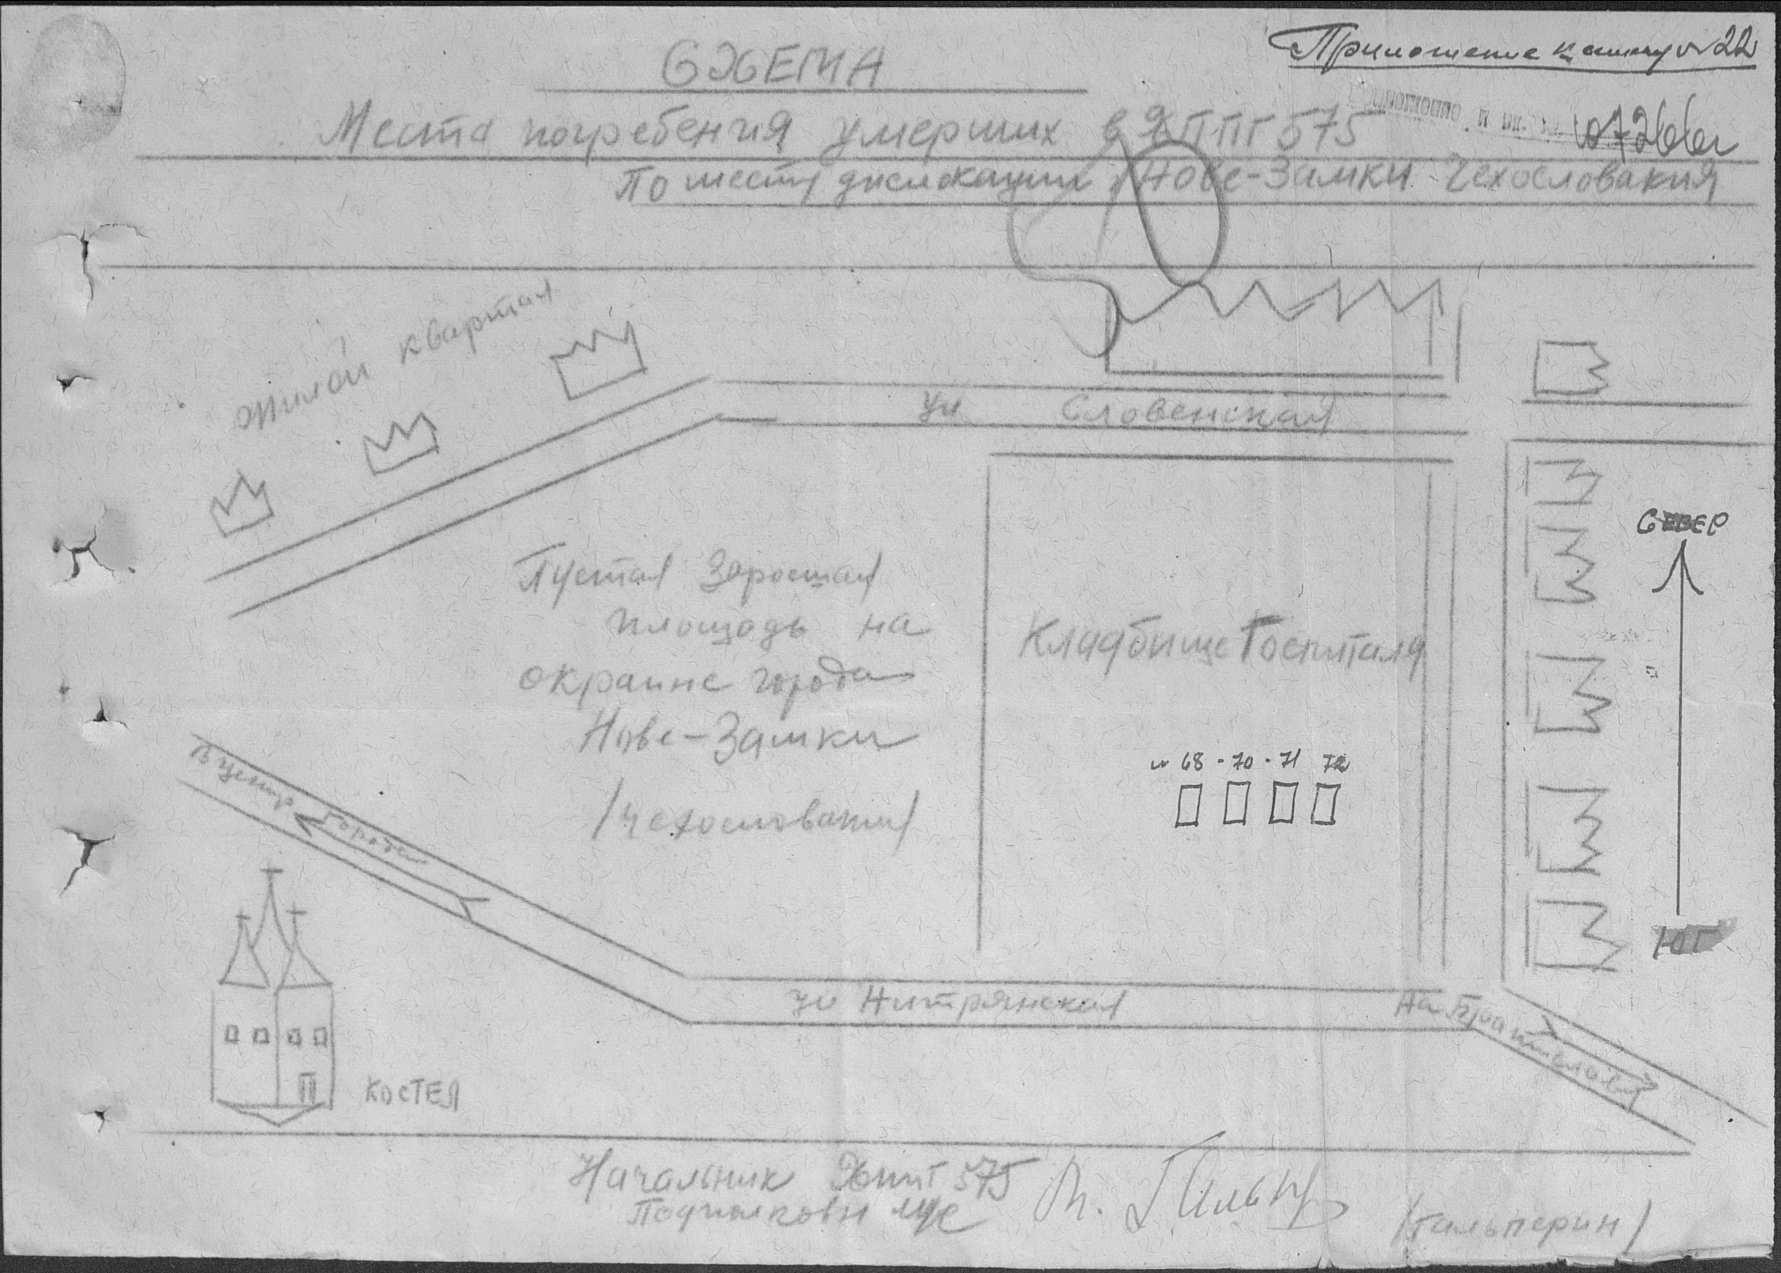 Приложение к №22
07266с
СХЕМА
Места погребения умерших в ХППГ 575
По месту дислокации Нове-Замки Чехословакия
Жилой квартал
ул Словенская
СЕВЕР
Пустая Заросшая
площадь на
окраине города
Нове-Замки
/Чехословакия/
Кладбище Госпиталя
№ 68 - 70 - 71 72
В центр города
ЮГ
ул Нитрянская
На Братислав
КОСТЕЛ
Начальник ХППГ 575
Подполковн м/с
/Гальперин/